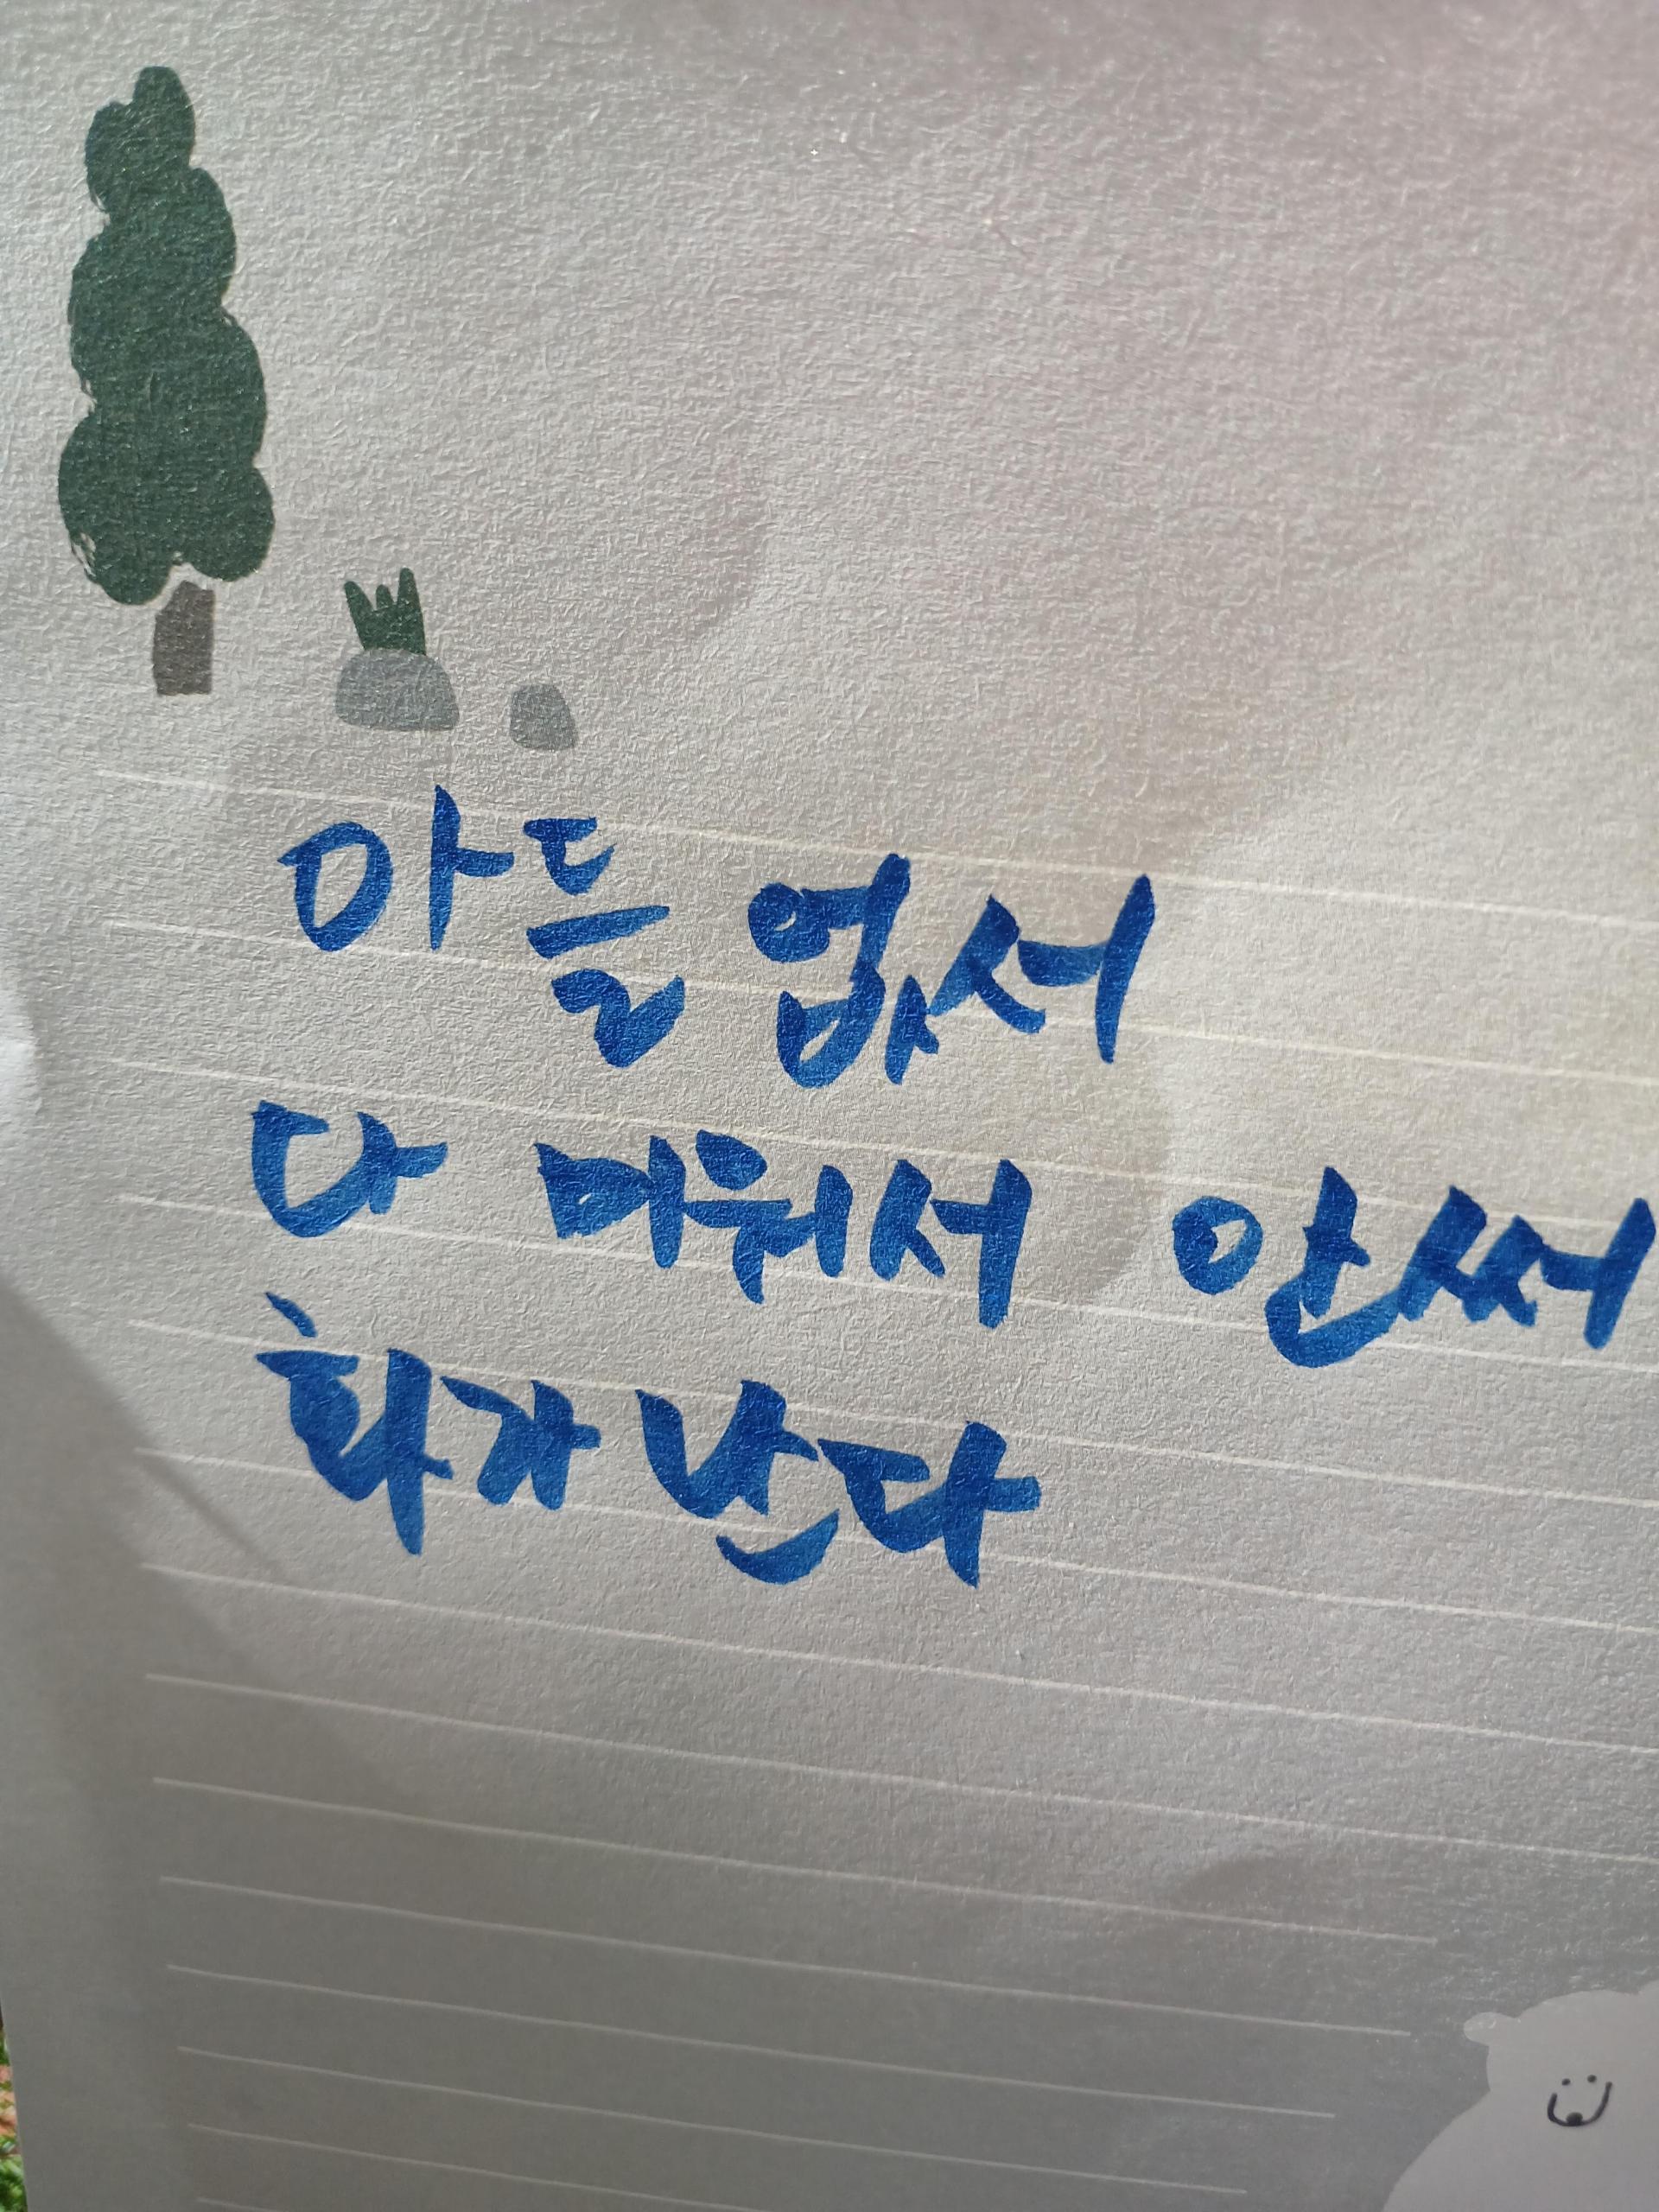 아들 없서
다 미워서 안써
화가 난다